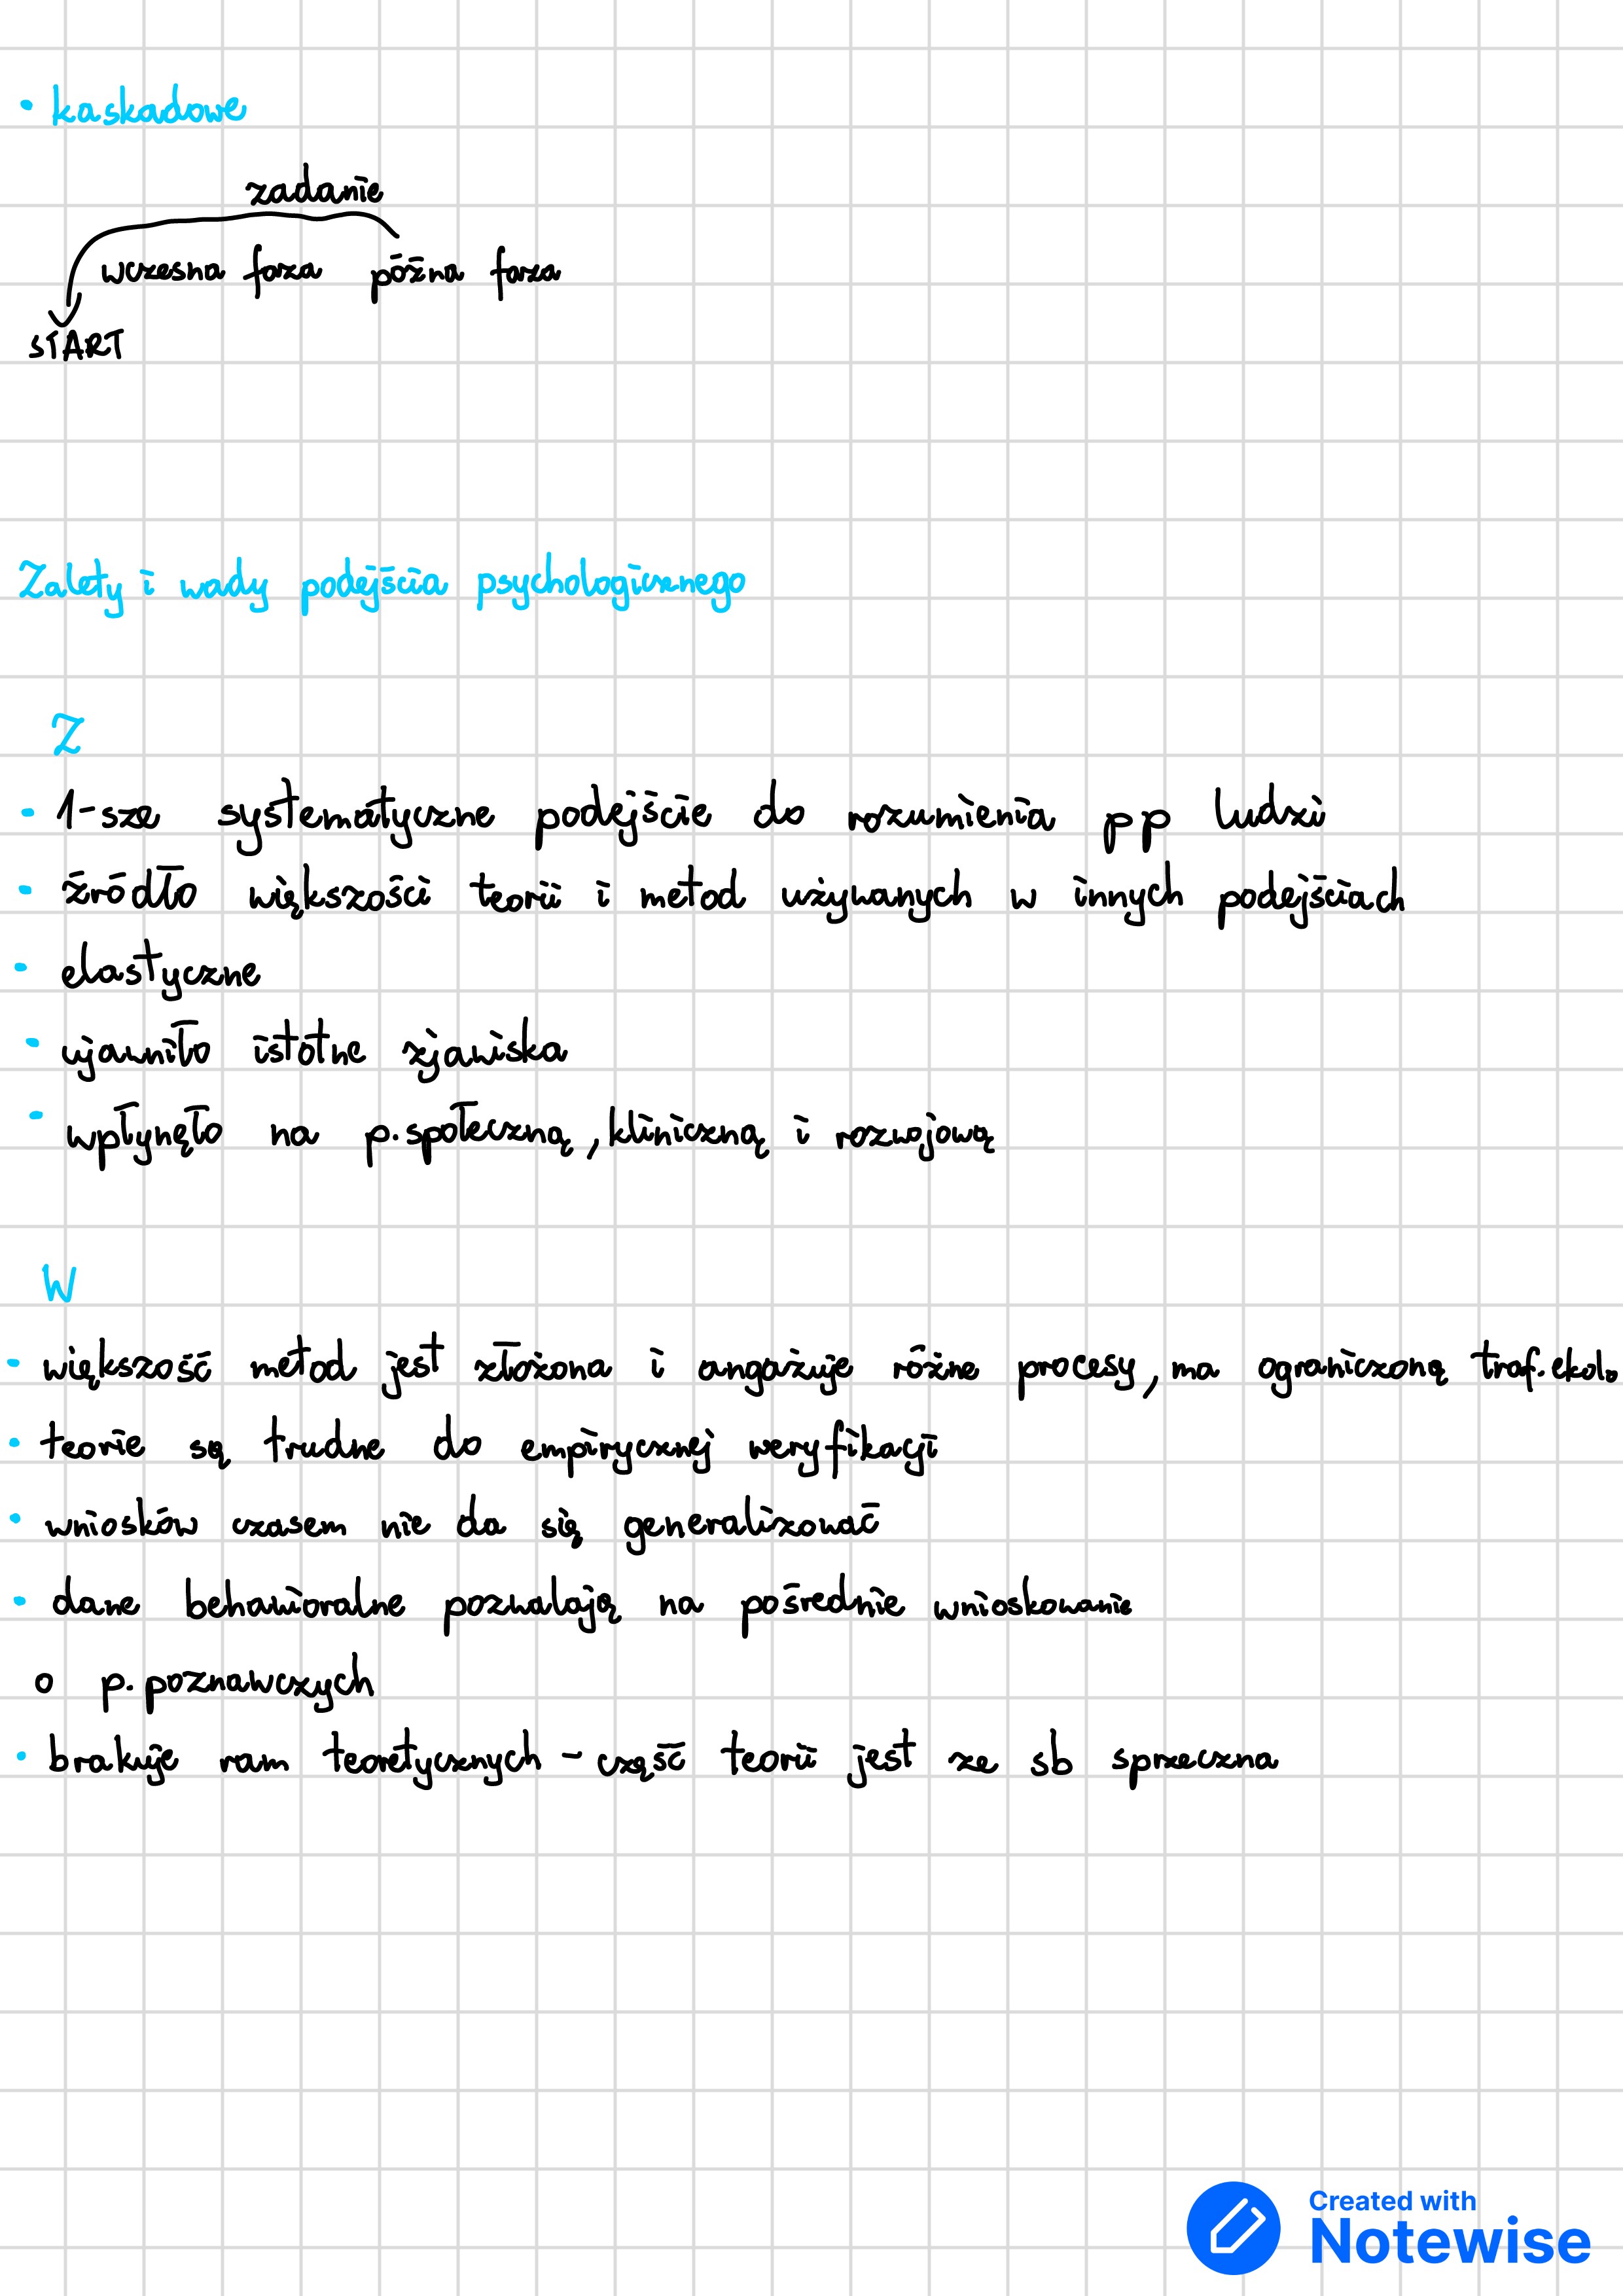 • kaskadowe
zadanie
wczesna faza późna faza
START
Zalety i wady podejścia psychologicznego
Z
• 1-sze systematyczne podejście do rozumienia pp ludzi
• źródło większości teorii i metod używanych w innych podejściach
• elastyczne
• ujawniło istotne zjawiska
• wpłynęło na p.społeczną, kliniczną i rozwojową
W
• większość metod jest złożona i angażuje różne procesy, ma ograniczoną traf.ekol.
• teorie są trudne do empirycznej weryfikacji
• wniosków czasem nie da się generalizować
• dane behawioralne pozwalają na pośrednie wnioskowanie
o p.poznawczych
• brakuje ram teoretycznych - część teorii jest ze sb sprzeczna
Created with
Notewise